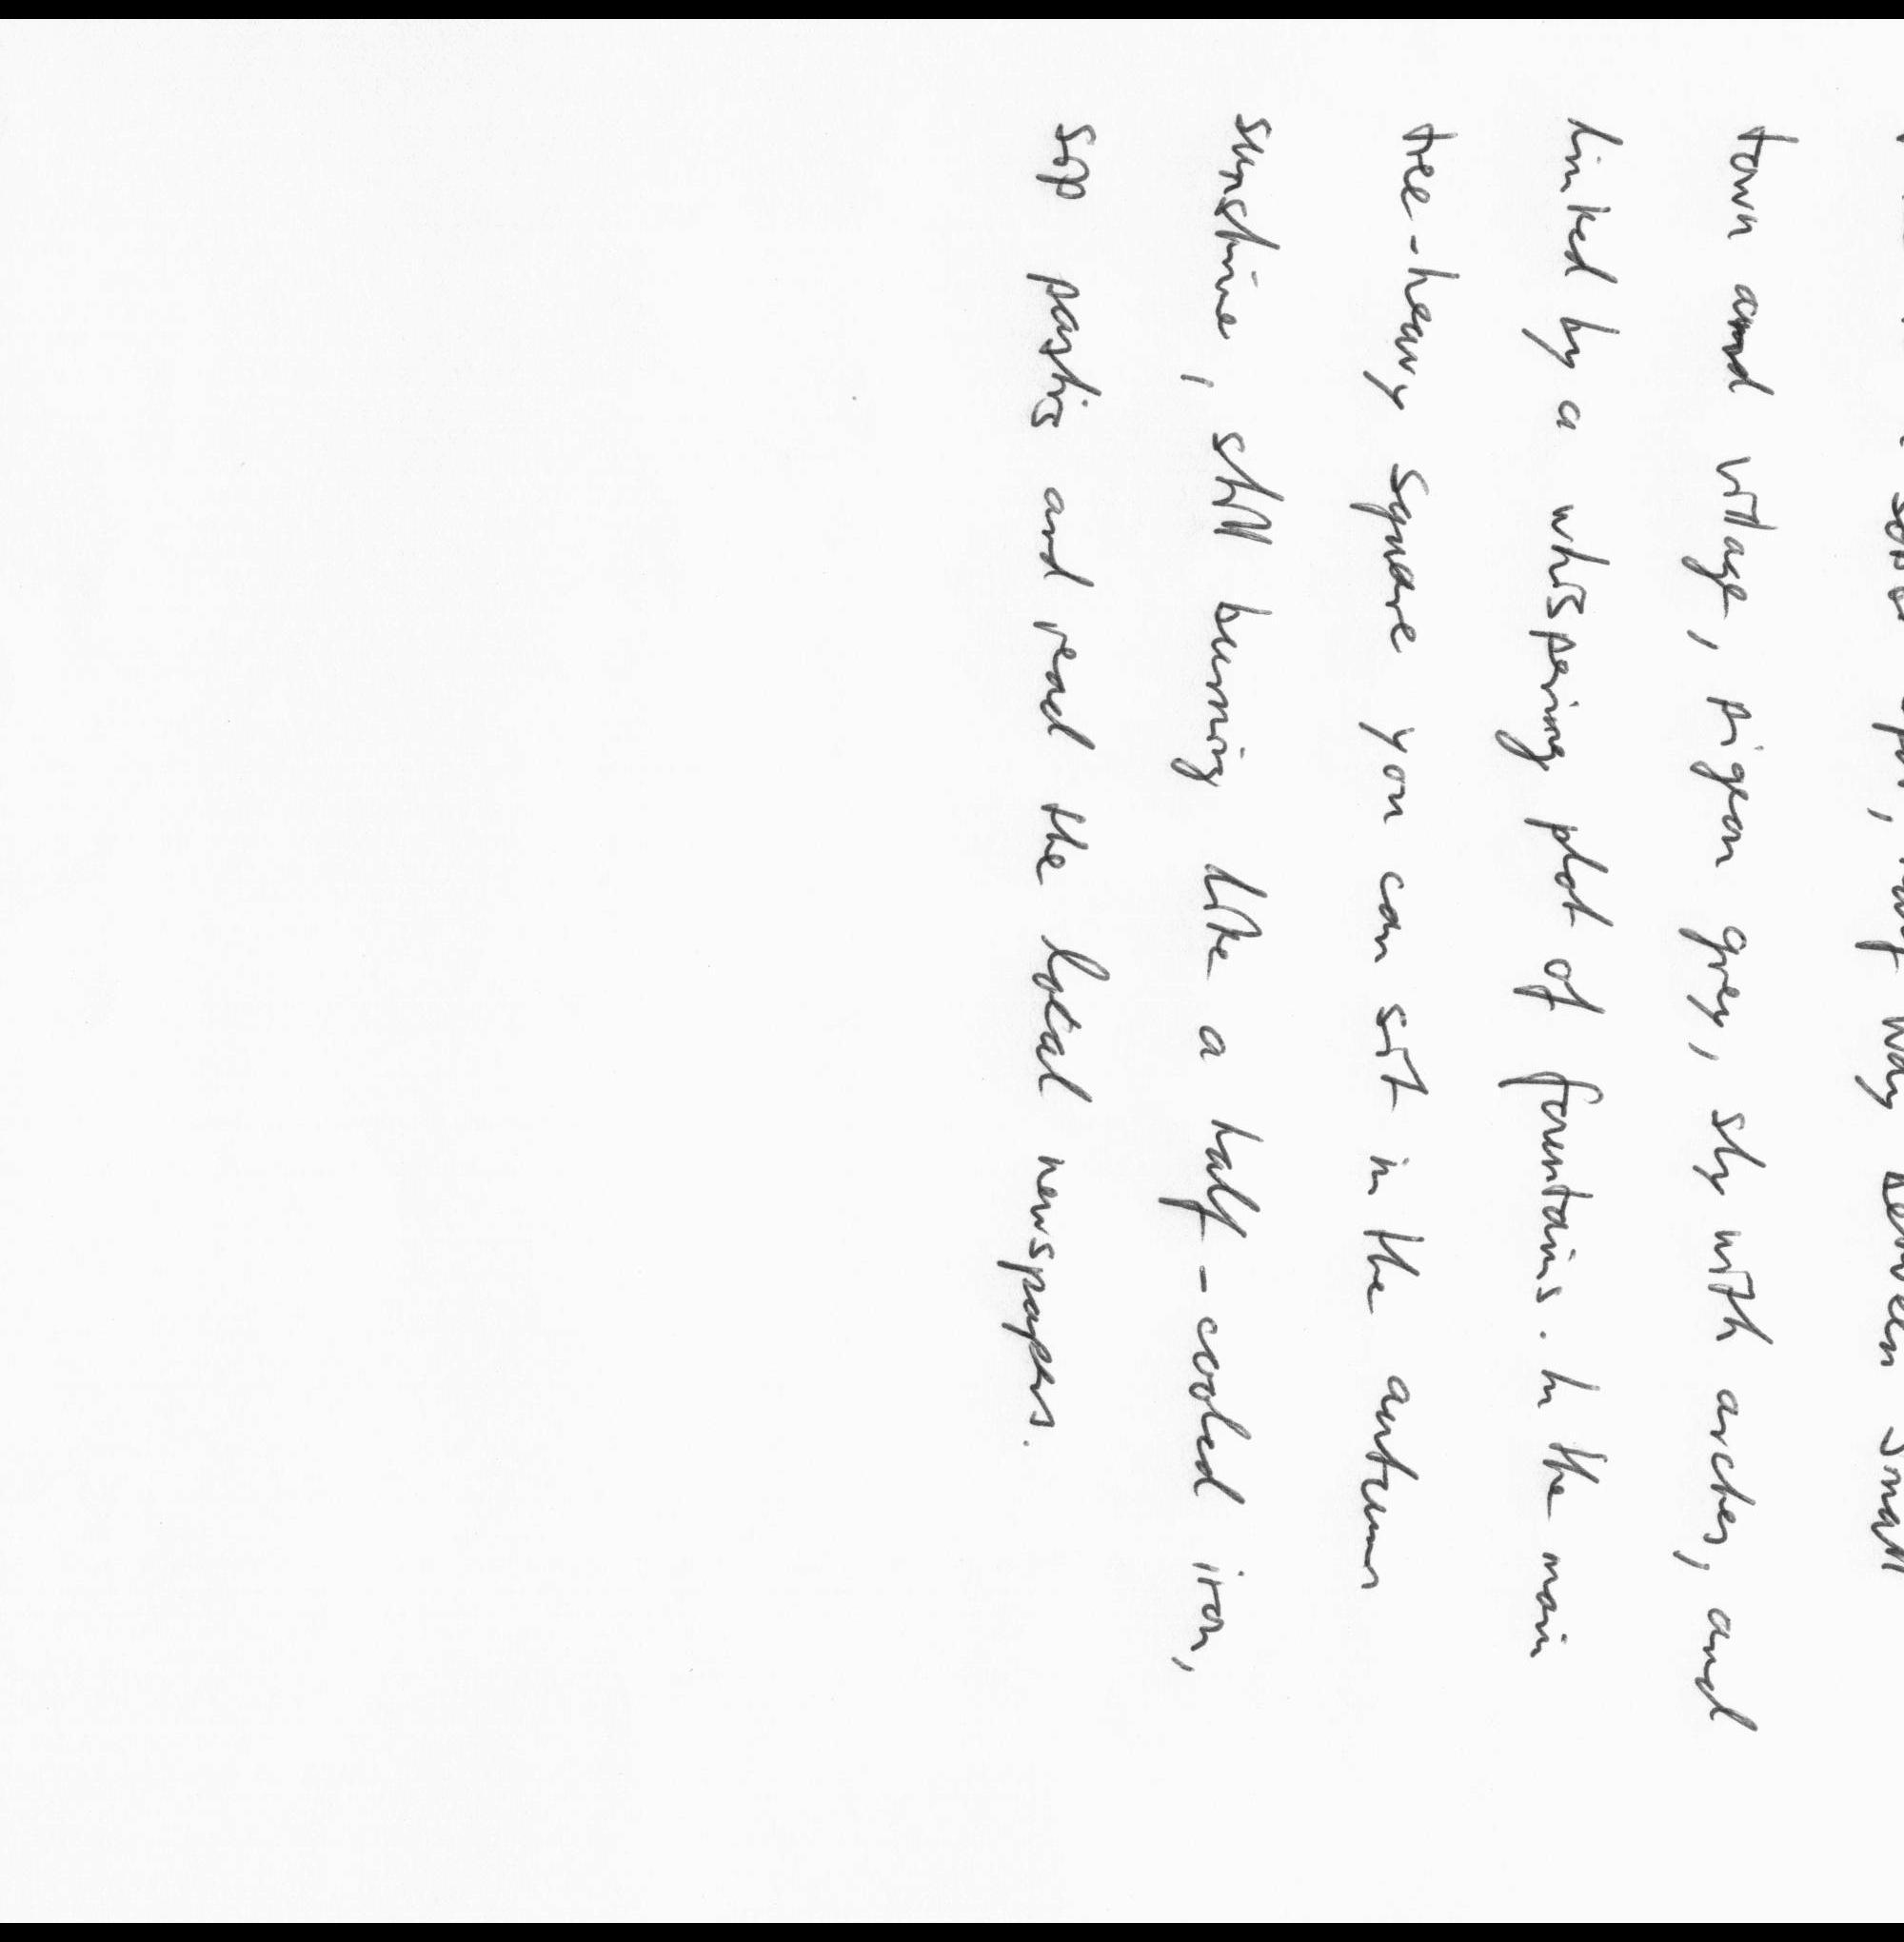 way between small
town and village, pigeon grey, sly with arches, and
linked by a whispering plot of fountains. In the main
tree-heavy square you can sit in the autumn
sunshine, still burning like a half-cooled iron,
sip pastis and read the local newspapers.